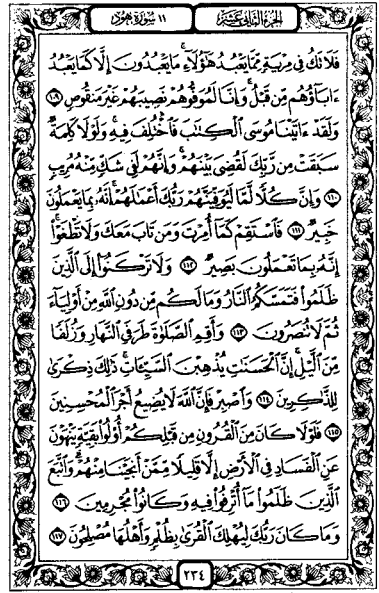 الجزء الثاني عشر
١١ سورة هود
فَلَا تَكُ فِي مِرْيَةٍ مِّمَّا يَعْبُدُ هَٰؤُلَاءِ ۚ مَا يَعْبُدُونَ إِلَّا كَمَا يَعْبُدُ
ءَابَآؤُهُم مِّن قَبْلُ ۚ وَإِنَّا لَمُوَفُّوهُمْ نَصِيبَهُمْ غَيْرَ مَنقُوصٍ ١٠٩
وَلَقَدْ ءَاتَيْنَا مُوسَى ٱلْكِتَٰبَ فَٱخْتُلِفَ فِيهِ ۚ وَلَوْلَا كَلِمَةٌ
سَبَقَتْ مِن رَّبِّكَ لَقُضِىَ بَيْنَهُمْ ۚ وَإِنَّهُمْ لَفِى شَكٍّ مِّنْهُ مُرِيبٍ
١١٠ وَإِنَّ كُلًّا لَّمَّا لَيُوَفِّيَنَّهُمْ رَبُّكَ أَعْمَٰلَهُمْ ۚ إِنَّهُۥ بِمَا يَعْمَلُونَ
خَبِيرٌ ١١١ فَٱسْتَقِمْ كَمَآ أُمِرْتَ وَمَن تَابَ مَعَكَ وَلَا تَطْغَوْا۟ ۚ
إِنَّهُۥ بِمَا تَعْمَلُونَ بَصِيرٌ ١١٢ وَلَا تَرْكَنُوٓا۟ إِلَى ٱلَّذِينَ
ظَلَمُوا۟ فَتَمَسَّكُمُ ٱلنَّارُ وَمَا لَكُم مِّن دُونِ ٱللَّهِ مِنْ أَوْلِيَآءَ
ثُمَّ لَا تُنصَرُونَ ١١٣ وَأَقِمِ ٱلصَّلَوٰةَ طَرَفَىِ ٱلنَّهَارِ وَزُلَفًا
مِّنَ ٱلَّيْلِ ۚ إِنَّ ٱلْحَسَنَٰتِ يُذْهِبْنَ ٱلسَّيِّـَٔاتِ ۚ ذَٰلِكَ ذِكْرَىٰ
لِلذَّٰكِرِينَ ١١٤ وَٱصْبِرْ فَإِنَّ ٱللَّهَ لَا يُضِيعُ أَجْرَ ٱلْمُحْسِنِينَ
١١٥ فَلَوْلَا كَانَ مِنَ ٱلْقُرُونِ مِن قَبْلِكُمْ أُو۟لُوا۟ بَقِيَّةٍ يَنْهَوْنَ
عَنِ ٱلْفَسَادِ فِى ٱلْأَرْضِ إِلَّا قَلِيلًا مِّمَّنْ أَنجَيْنَا مِنْهُمْ ۗ وَٱتَّبَعَ
ٱلَّذِينَ ظَلَمُوا۟ مَآ أُتْرِفُوا۟ فِيهِ وَكَانُوا۟ مُجْرِمِينَ ١١٦
وَمَا كَانَ رَبُّكَ لِيُهْلِكَ ٱلْقُرَىٰ بِظُلْمٍ وَأَهْلُهَا مُصْلِحُونَ ١١٧
٢٣٤